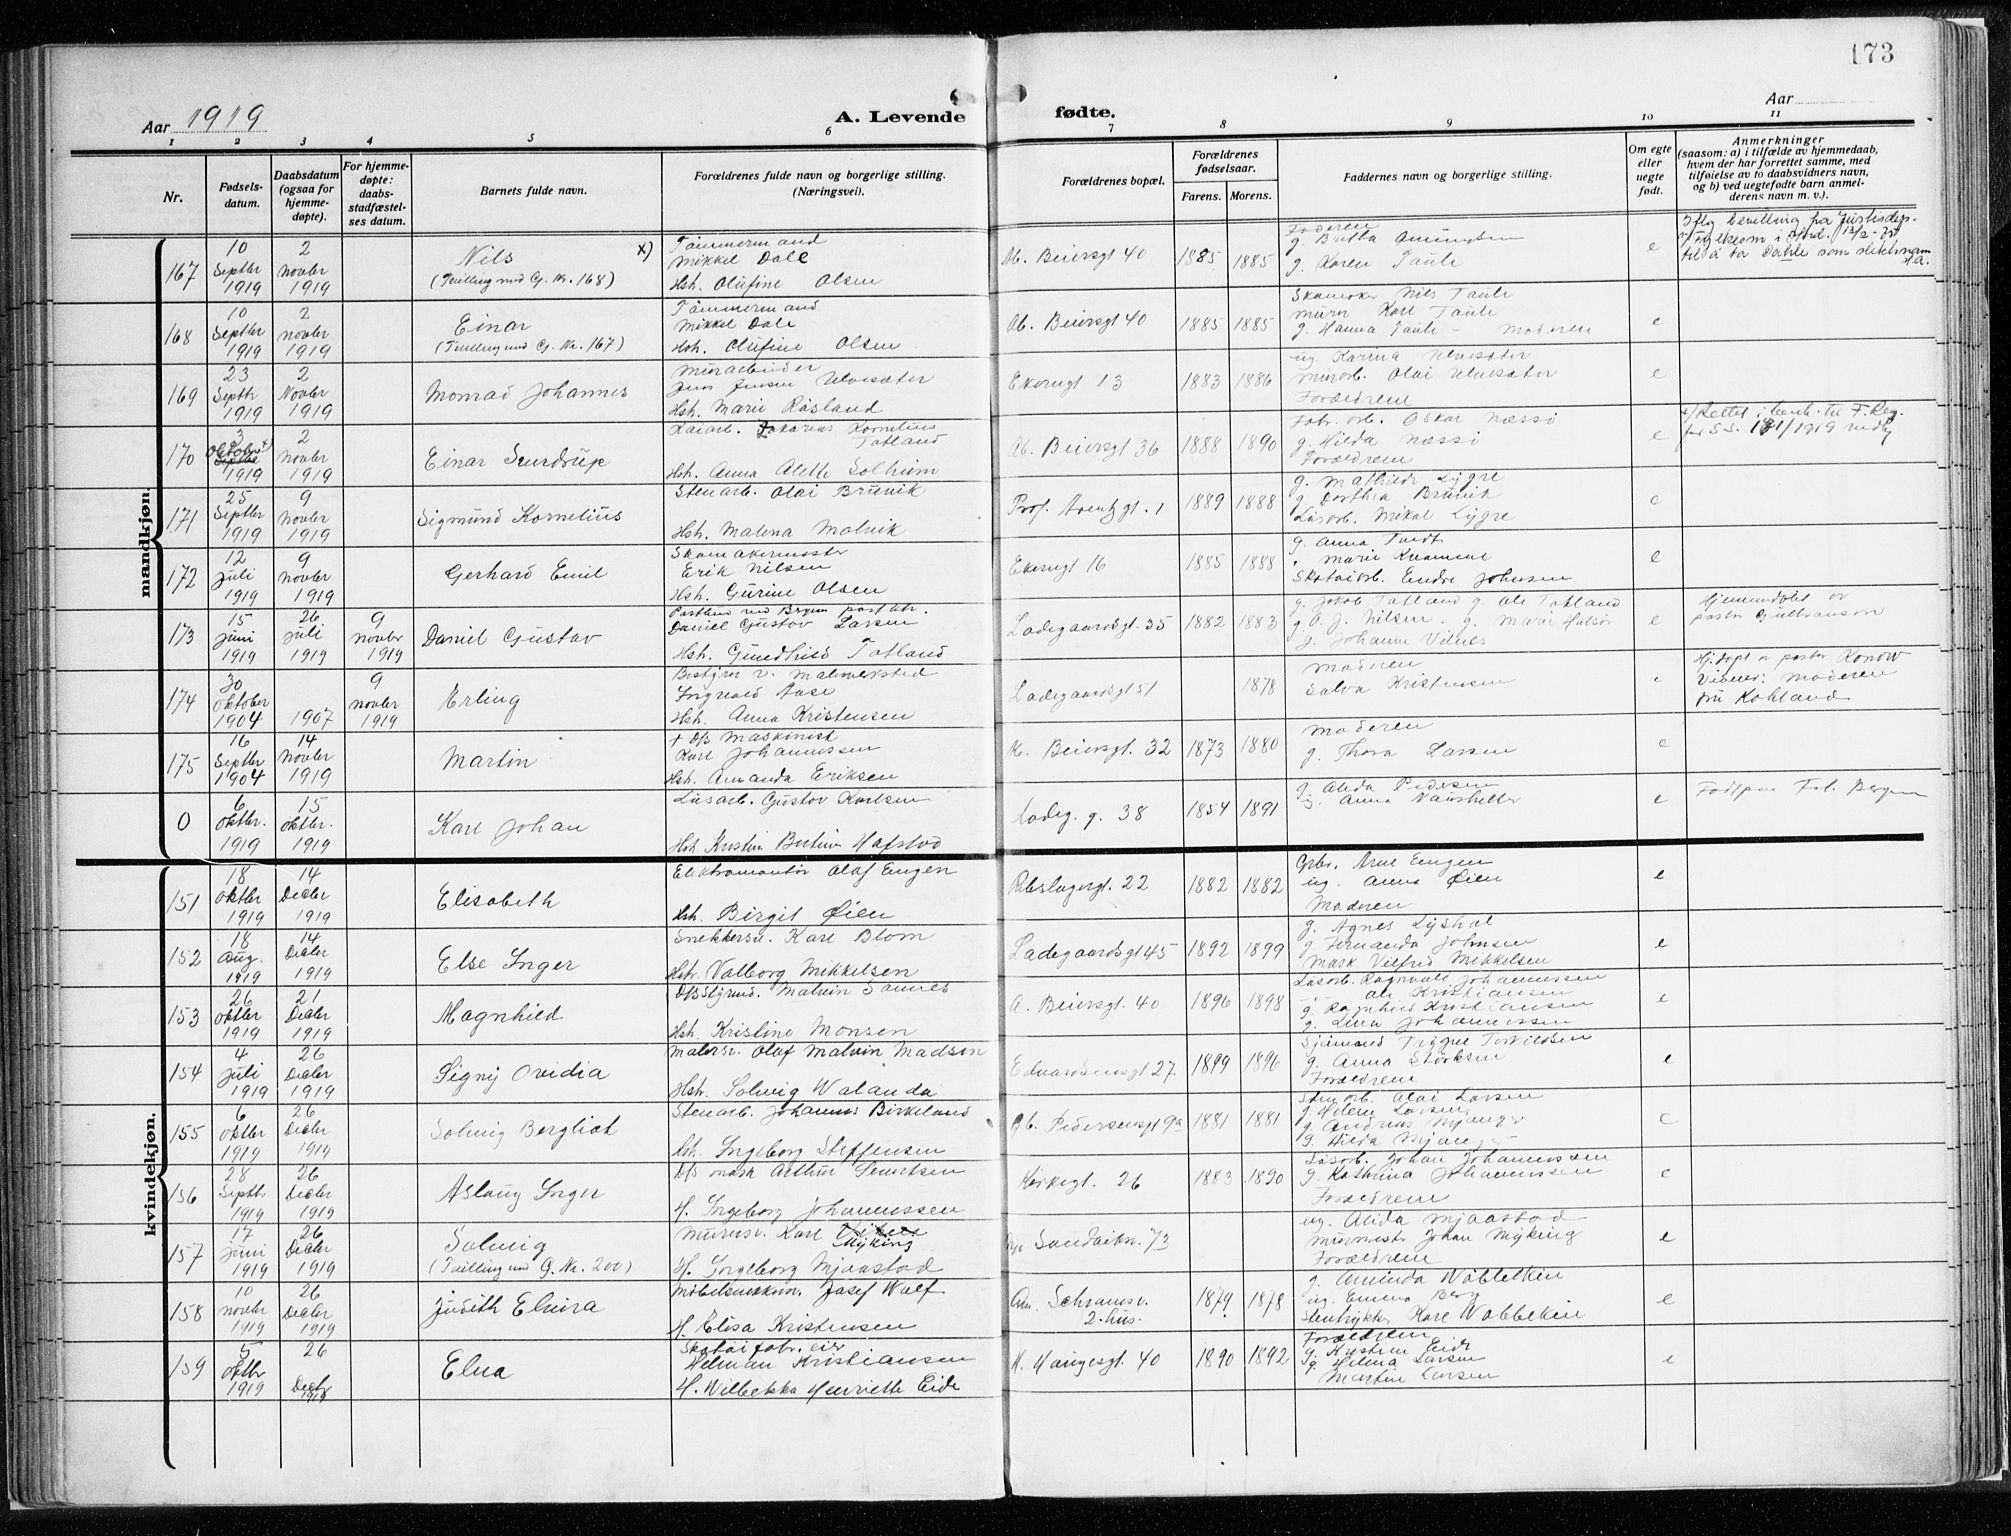 173
Aar 1919
A. Levende fødte.
Aar
1 2 3 4 5 6 7 8 9 10 11
Nr.
Fødsels-
datum.
Daabsdatum
(ogsaa for
hjemme-
døpte).
For hjemme-
døpte:
daabs-
stadfæstel-
ses datum.
Barnets fulde navn.
Forældrenes fulde navn og borgerlige stilling.
(Næringsvei).
Forældrenes bopæl.
Forældrenes
fødselsaar.
Farens. Morens.
Faddernes navn og borgerlige stilling.
Om egte
eller
uegte
født.
Anmerkninger
(saasom: a) i tilfælde av hjemmedaab,
hvem der har forrettet samme, med
tilføielse av to daabsvidners navn,
og b) ved uegtefødte barn anmel-
derens navn m. v.).
mandkjøn.
167
10
Septbr
1919
2
Novbr
1919
Nils x)
(Tvilling med G. Nr. 168)
Tømmermand
Mikkel Dale
Hst. Olufine Olsen
Ab. Beiersgt 40
1885 1885
Faderen
g. Britta Amundsen
g. Karen Taule
e
til å ta Dahle som slektsnavn
168
10
Septbr
1919
2
Novbr
1919
Einar
(Tvilling med G. Nr. 167)
Tømmermand
Mikkel Dale
Hst. Olufine Olsen
Ab. Beiersgt 40
1885 1885
Skomaker Nils Taule
Murer Karl Taule
g. Hanna Taule - Moderen
e
169
23
Septbr
1919
2
Novbr
1919
Monrad Johannes
Murarbeider
Jens Jensen Ulvesæter
Hst. Marie Røsland
Ekrengt 13
1883 1886
ug. Karina Ulvesæter
Murarb. Olai Ulvesæter
Forældrene
e
170
3
Oktober x)
Septbr
1919
2
Novbr
1919
Einar Sundrup
Kaiarb. Zakarias Kornelius
Totland
Hst. Anna Alette Solheim
Ab. Beiersgt 36
1888 1890
Fabr. arb. Oskar Næssø
g. Hilda Næssø
Forældrene
e
x) Rettet i henh. til F. Reg.
171
25
Septbr
1919
9
Novbr
1919
Sigmund Kornelius
Stenarb. Olai Bruvik
Hst. Malena Matvik
1889 1888
g. Mathilde Lygre
g. Dorthea Bruvik
Løsarb. Mikal Lygre
e
172
12
Juli
1919
9
Novbr
1919
Gerhard Emil
Skomakermester
Erik Nilsen
Hst. Gurine Olsen
Ekrengt 16
1885 1888
g. Anna Tvedt
" Marie Kvamme
Skotøiarb. Endre Johnsen
e
173
15
Juni
1919
26
Juli
1919
9
Novbr
1919
Daniel Gustav
Postbud ved Bergen postktr.
Daniel Gustav Larsen
Hst. Gundhild Totland
Ladegaardsgt. 35
1882 1883
g. Jakob Totland g. Ole Totland
g. O. J. Nilsen. g. Marie Halsør
g. Johanne Vilnes
e
Hjemmedøbt av
pastor Gulbranson
174
30
Oktober
1904
1907
9
Novbr
1919
Erling
Bestyrer v. Malmverksted
Ingvald Aase
Hst. Anna Kristensen
Ladegaardsgt 51
1878
Moderen
Salva Kristensen
e
Hj.døpt av pastor Konow
Vidner: Moderen
fru Kahland
175
16
Septbr
1904
14
Novbr
1919
Martin
† D/s Maskinist
Karl Johannessen
Hst. Amanda Eriksen
A. Beiersgt. 32
1873 1880
Moderen
g. Thora Larsen
e
0
6
Oktbr.
1919
15
Oktbr.
1919
Karl Johan
Løsarb. Gustav Karlsen
Hst. Kristin Bertine Hafstad
Ladeg. g. 38
1854 1891
g. Alida Pedersen
e
Bergen
kvindekjøn.
151
18
Oktbr
1919
14
Decbr
1919
Elisabeth
Elektromontør Olaf Engen
Hst. Birgit Øien
Rebslagergt. 22
1882 1882
Grbr. Arne Engen
ug. Anna Øien
Moderen
e
152
18
Aug.
1919
14
Decbr
1919
Else Inger
Snekkersv. Karl Blom
Hst. Valborg Mikkelsen
Ladegaardsgt 45
1892 1899
g. Agnes Lyshol
g. Fernanda Johnsen
Mask Vilfred Mikkelsen
e
153
26
Oktbr
1919
21
Decbr
1919
Magnhild
Malvin Sannes
Hst. Kristine Monsen
A. Beiersgt. 40
1896 1898
Løsarb. Ragnvald Johannessen
" Ole Kristiansen
g. Ragnhild Kristiansen
g. Lina Johannessen
e
154
4
Juli
1919
26
Decbr
1919
Signy Ovidia
Malersv. Olaf Malvin Madsen
Hst. Solveig Walanda
Edvardsensgt 27
1899 1896
Sjømand Trygve Torkildsen
g. Anna Størksen
Forældrene
e
155
6
Oktbr
1919
26
Decbr
1919
Solveig Bergliot
Stenarb. Johannes Birkeland
Hst. Ingeborg Steffensen
Ob. Pedersensgt 9a
1881 1881
Stenarb. Olai Larsen
g. Helene Larsen
g. Andreas Mjanger
g. Hilda Mjanger
e
156
28
Septbr
1919
26
Decbr
1919
Aslaug Inger
D/s mask Arthur Sivertsen
H. Ingeborg Johannessen
Kirkegt. 26
1883 1890
Løsarb. Johan Johannessen
g. Kathrina Johannessen
Forældrene
e
157
17
Juni
1919
26
Decbr
1919
Solveig
(Tvilling med G. Nr. 200)
Murersv. Karl
Myking
H. Ingeborg Mjaastad
Nye Sandvikv. 73
ug. Alida Mjaastad
Murmestr Johan Myking
Forældrene
e
158
10
Novbr
1919
26
Decbr
1919
Judith Elvira
Møbelsnekkerm. Josef Wolf
H. Elisa Kristensen
Am. Schramsv.
2. hus.
1879 1878
g. Aminda Wobbekin
ug. Emma Berg
Stentrykker Karl Wobbekin
e
159
5
Oktbr
1919
26
Decbr
1919
Elna
Skotøifabr. eier
Helman Kristiansen
H. Wilbekka Henriette Eide
H. Haugesgt. 40
1890 1892
Forældrene
g. Kristine Eide
g. Helma Larsen
Martin Larsen
e